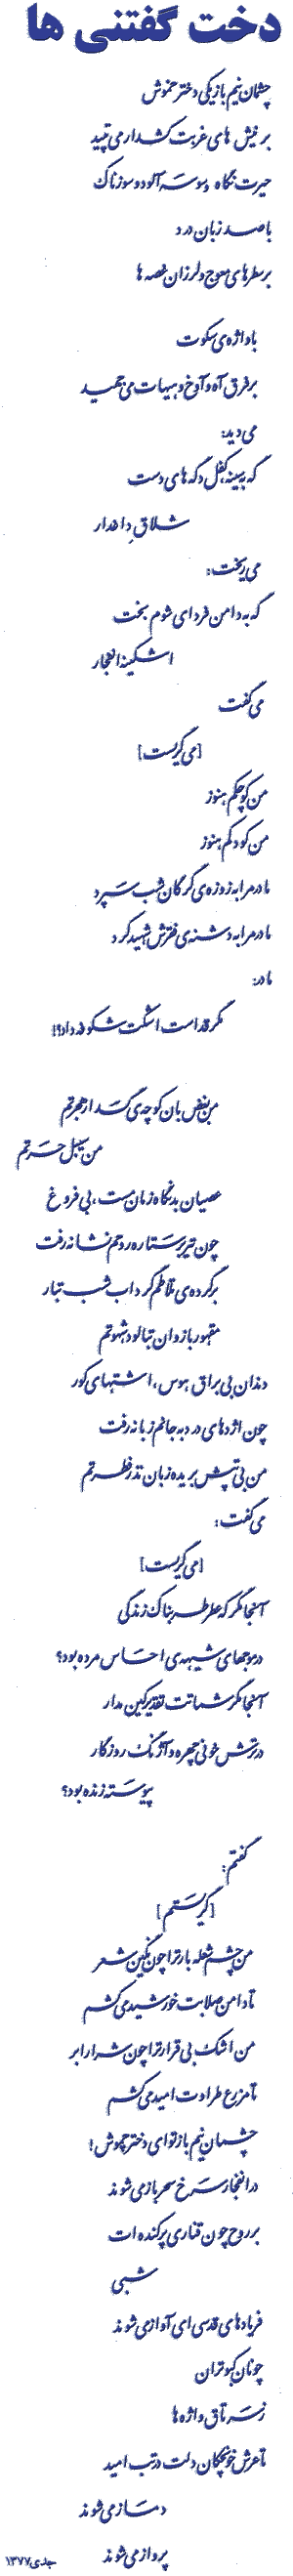 دخت گفتنی ها
چشمان نیم باز یکی دختر خموش
بر نیش های غربت کشدار می تپید
حیرت نگاه وسوسه آلود و سوزناک
با صد زبان درد
بر سطرهای معوج و لرزان غصه ها
با واژه ی سکوت
بر فرق آه و آوخ و هیهات می چمید
می دید:
که به سینه کفل دکه های دست
شلاق داغدار
می ریخت:
که به دامن فردای شوم بخت
اشکینه انفجار
می گفت
[می گریست]
من کوچکم هنوز
من کودکم هنوز
مادر مرا به زوزه ی گرگان شب سپرد
مادر مرا به دشنه ی فقرش شهید کرد
مادر:
مگر قداست اشکت شکوفه داد؟!
من بغض بان کوچه ی گسدار هجرتم
من سمبل حسرتم
عصیان بد نگاه زمان مست، بی فروغ
چون تیر بر ستاره روحم نشانه رفت
بر گرده ی تلاطم گرداب شب تبار
مقهور بازوان تبالود شهوتم
دندان بی براق هوس، اشتهای کور
چون اژدهای درد به جانم زبانه رفت
من بی تپش بریده زبان تندر فطرتم
می گفت:
[می گریست]
آنجا مگر که عطر طربناک زندگی
در موجهای شیهه ی احساس مرده بود؟
آنجا مگر شماتت تقدیر کین مدار
در ترش خونی چهره و آژنگ روزگار
پیوسته زنده بود؟
گفتم:
[گریستم]
من چشم شعله بار ترا چون نگین شعر
تا دامن صلابت خورشید می کشم
من اشک بی قرار ترا چون شرار ابر
تا مزرع طراوت امید می کشم
چشمان نیم باز تو ای دختر خموش!
در انفجار سرخ سحر باز می شوند
بر روح چون قناری پرکنده ات
شبی
فریادهای قدسی ای آواز می شوند
چونان کبوتران
زنسه تاق واژه ها
تا عرش خونچکان دلت در تب امید
دمساز می شوند
پرواز می شوند
جدی ۱۳۷۷